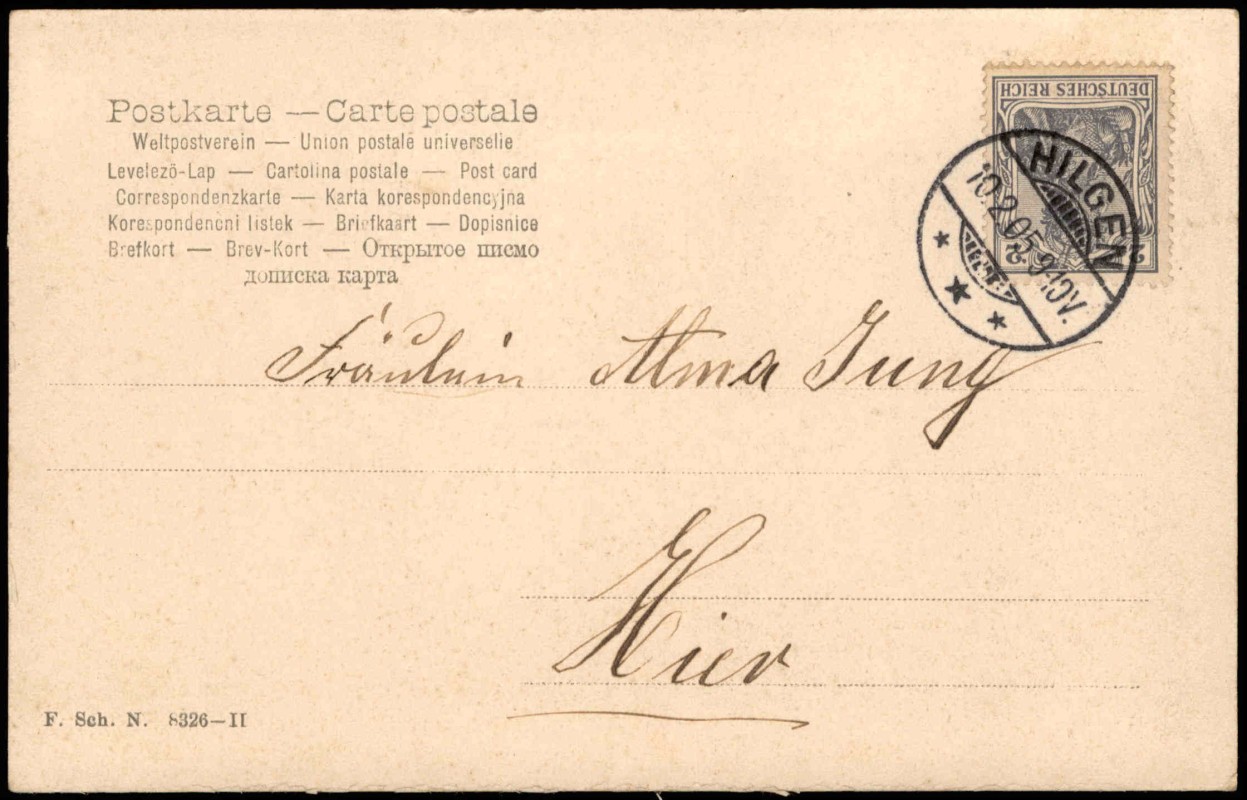 Postkarte — Carte postale
Weltpostverein — Union postale universelle
Levelezö-Lap — Cartolina postale — Post card
Correspondenzkarte — Karta korespondencyjna
Korespondenční listek — Briefkaart — Dopisnice
Brefkort — Brev-Kort — Открытое письмо
дописка карта
DEUTSCHES REICH
2 2
HILGEN
10.2.05 9-10V.
Fräulein Alma Jung
Hier
F. Sch. N. 8326-II